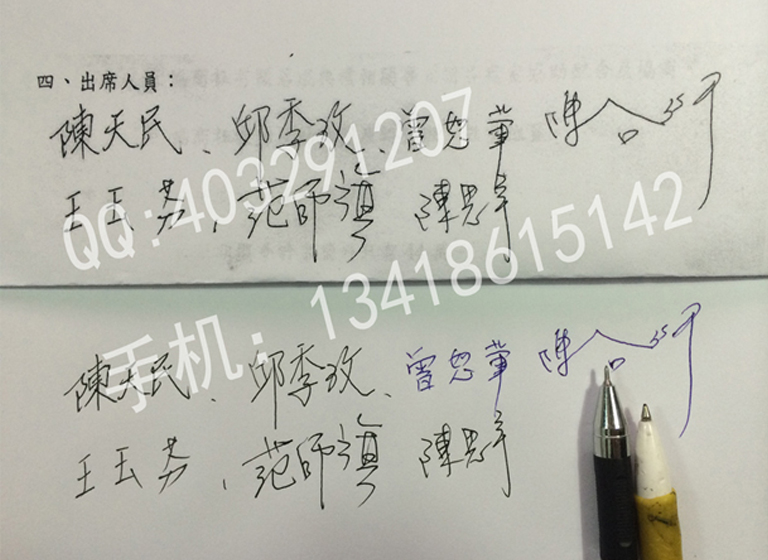 四、出席人員：
陳天民、邱季玫、曾恕華 陳
QQ:403291207
王玉芬，范師 陳思
手机：13418615142
陳天民、邱季玫、曾恕華 陳
王玉芬，范師 陳思